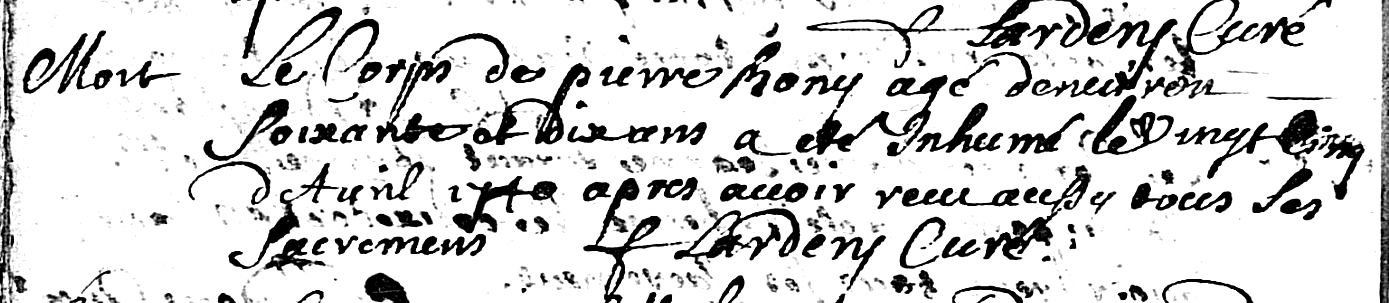 Lardeny Curé
Mort Le Corps de pierre hony agé denviron
Soixante et dix ans a eté Inhumé le Vingt Cinq
d'Avril 1740 apres avoir recu aussy tous les
Sacremens Lardeny Curé